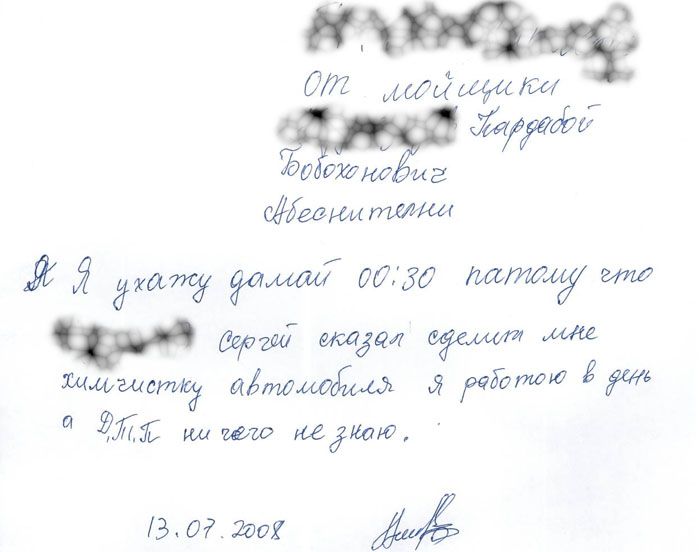 От мойщики
Кардабой
Бобохонович
Абеснителни
Я Я ухажу дамай 00:30 патому что
Сергей сказал сделит мне
химчистку автомобиля я работою в день
а Д,Т,П ни чего не знаю.
13.07.2008